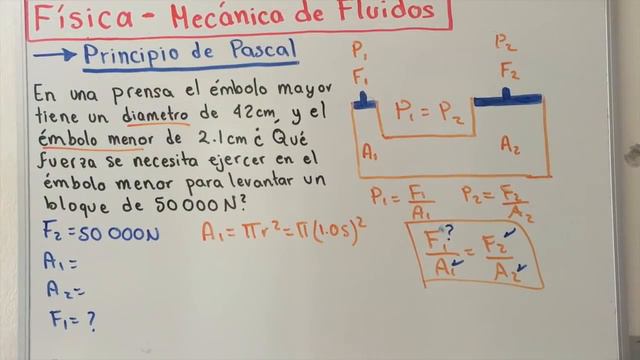 Física - Mecánica de Fluidos
→ Principio de Pascal
En una prensa el émbolo mayor
tiene un diametro de 42cm, y el
émbolo menor de 2.1cm ¿ Qué
fuerza se necesita ejercer en el
émbolo menor para levantar un
bloque de 50 000N?
F₂ = 50 000N
A₁ =
A₂ =
F₁ = ?
A₁ = πr² = π(1.05)²
P₁
F₁
P₂
F₂
P₁ = P₂
A₁
A₂
P₁ = F₁/A₁
P₂ = F₂/A₂
F₁?/A₁✓ = F₂✓/A₂✓